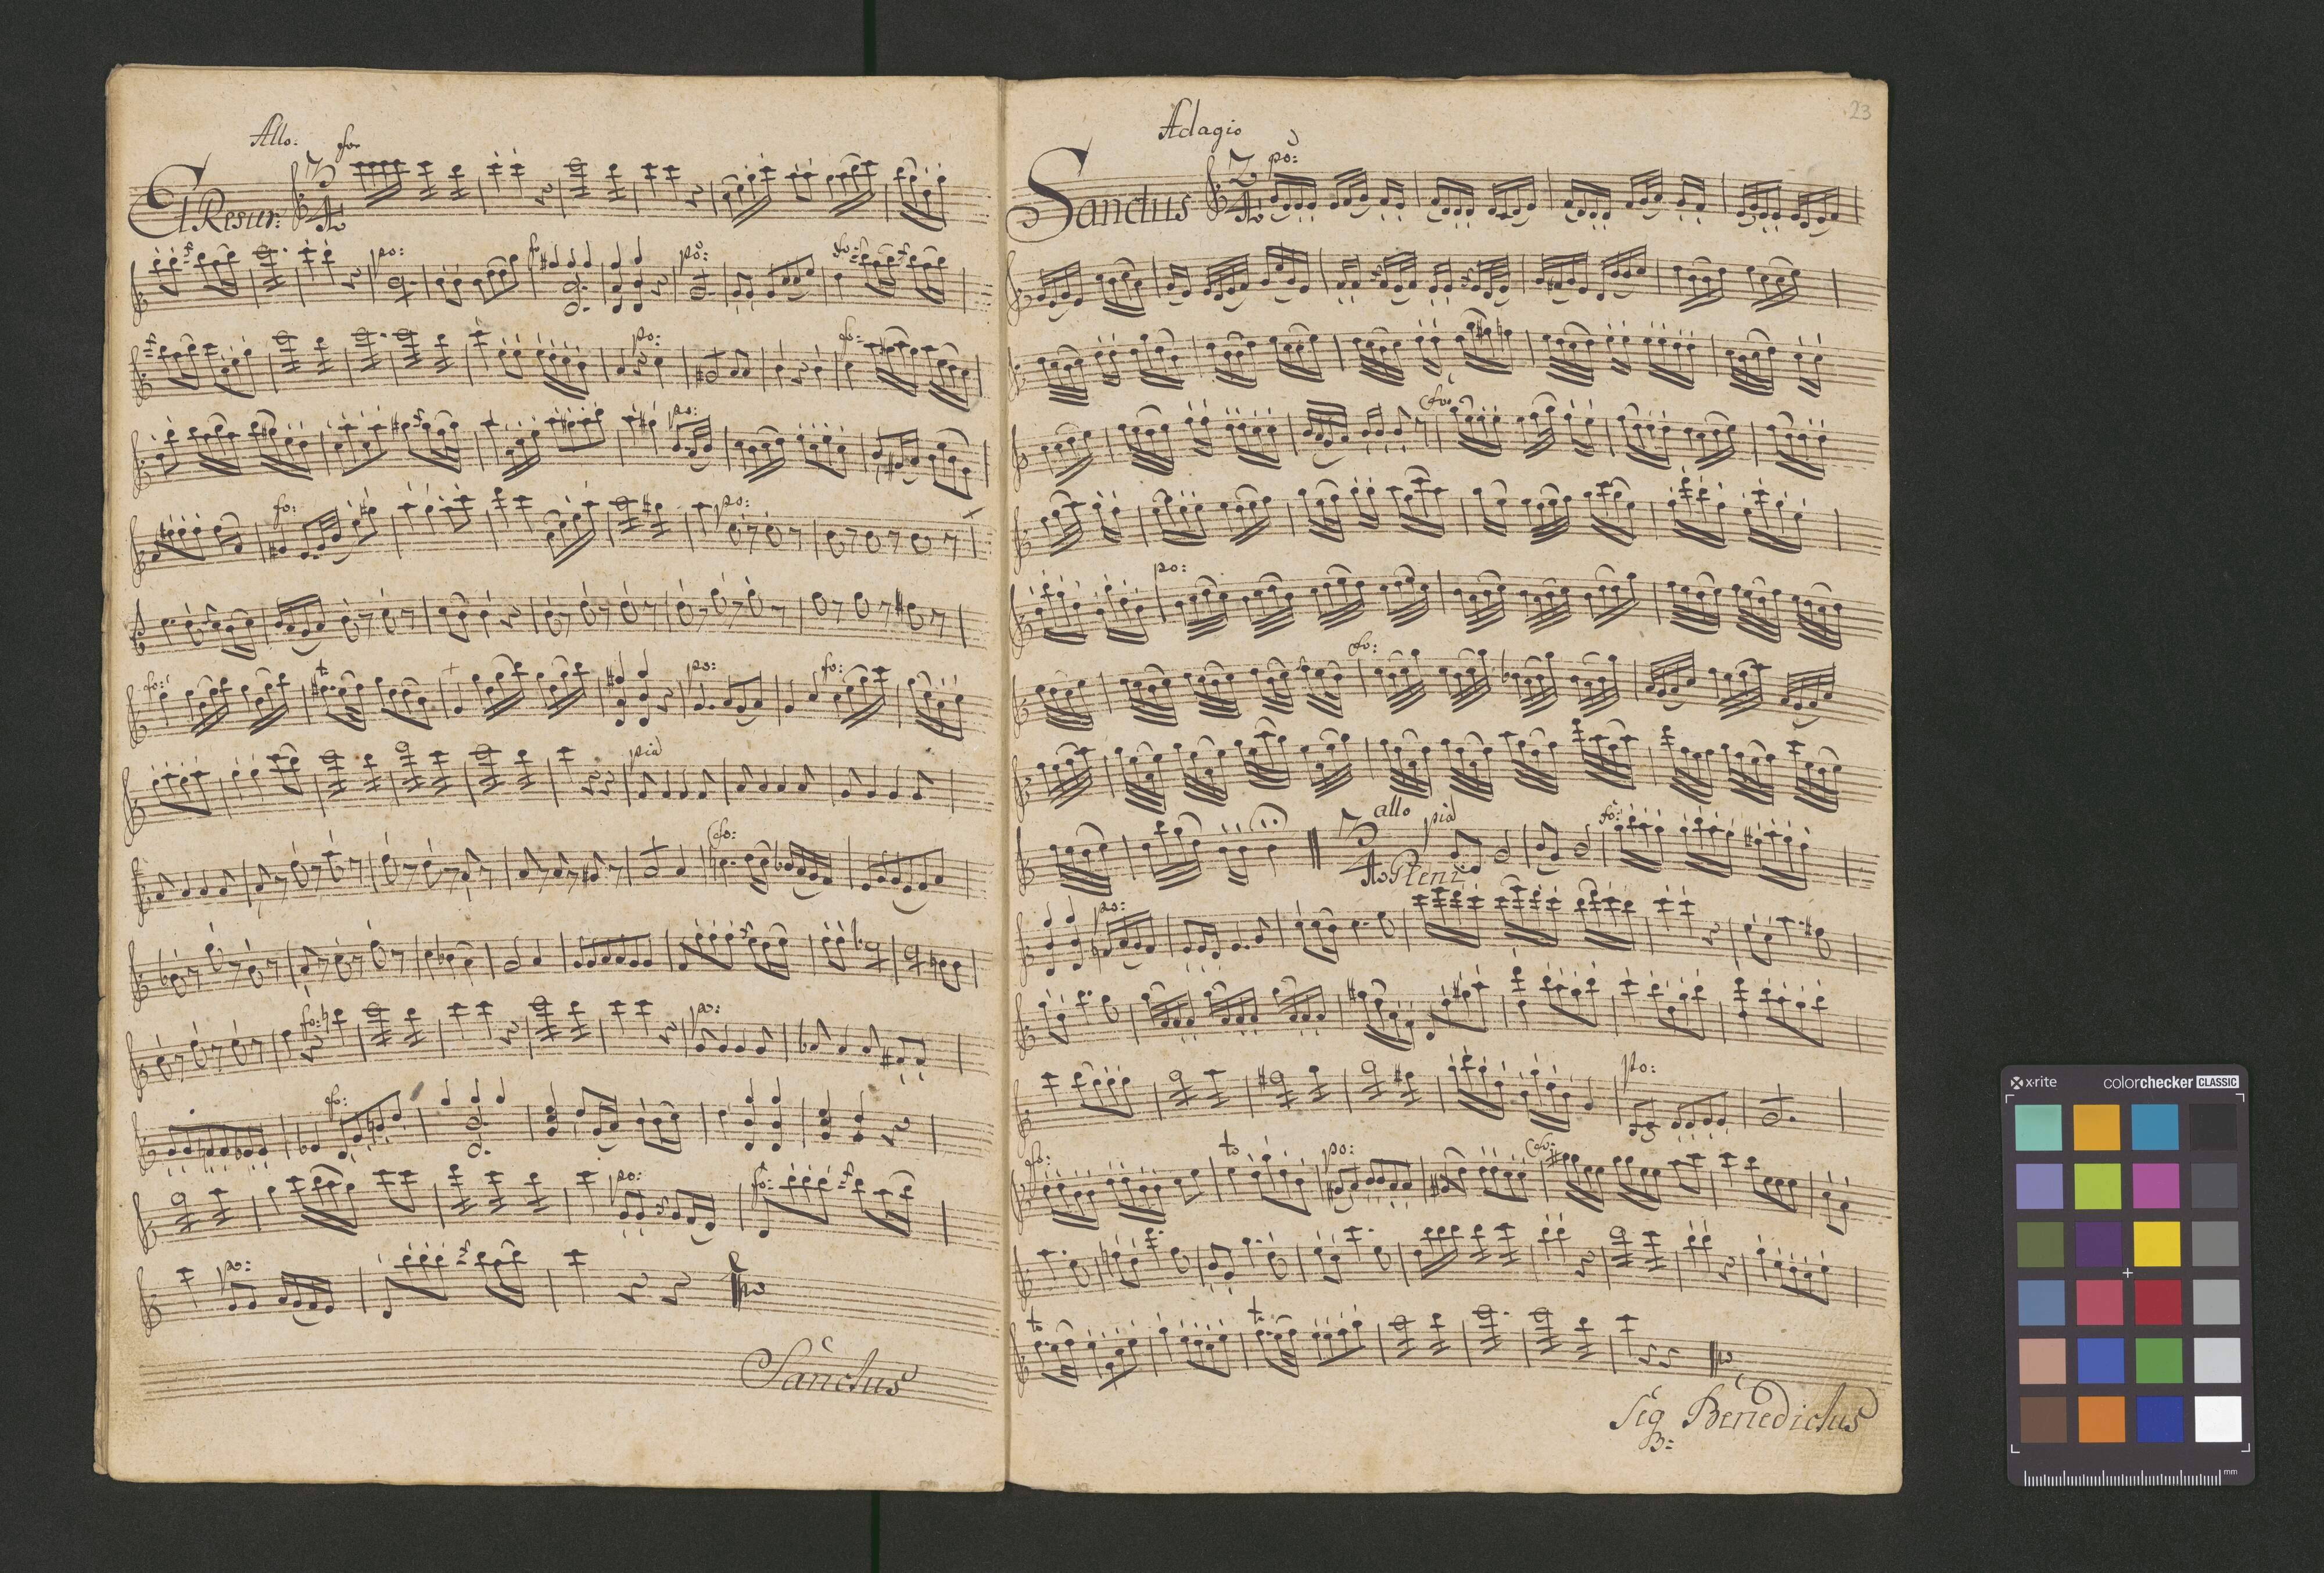 Allo: fo:
Et Resur: 3/4
po: fo po: fo:
po: fo:
po:
fo: po:
fo: po: fo:
pia
fo:
fo: po:
fo:
po: fo:
po:
Sanctus
23
Adagio
Sanctus 2/4 po:
fo:
po:
fo:
allo pia fo:
3/4 Pleni
po:
po:
fo: po: fo:
Seq Benedictus
x-rite colorchecker CLASSIC
mm